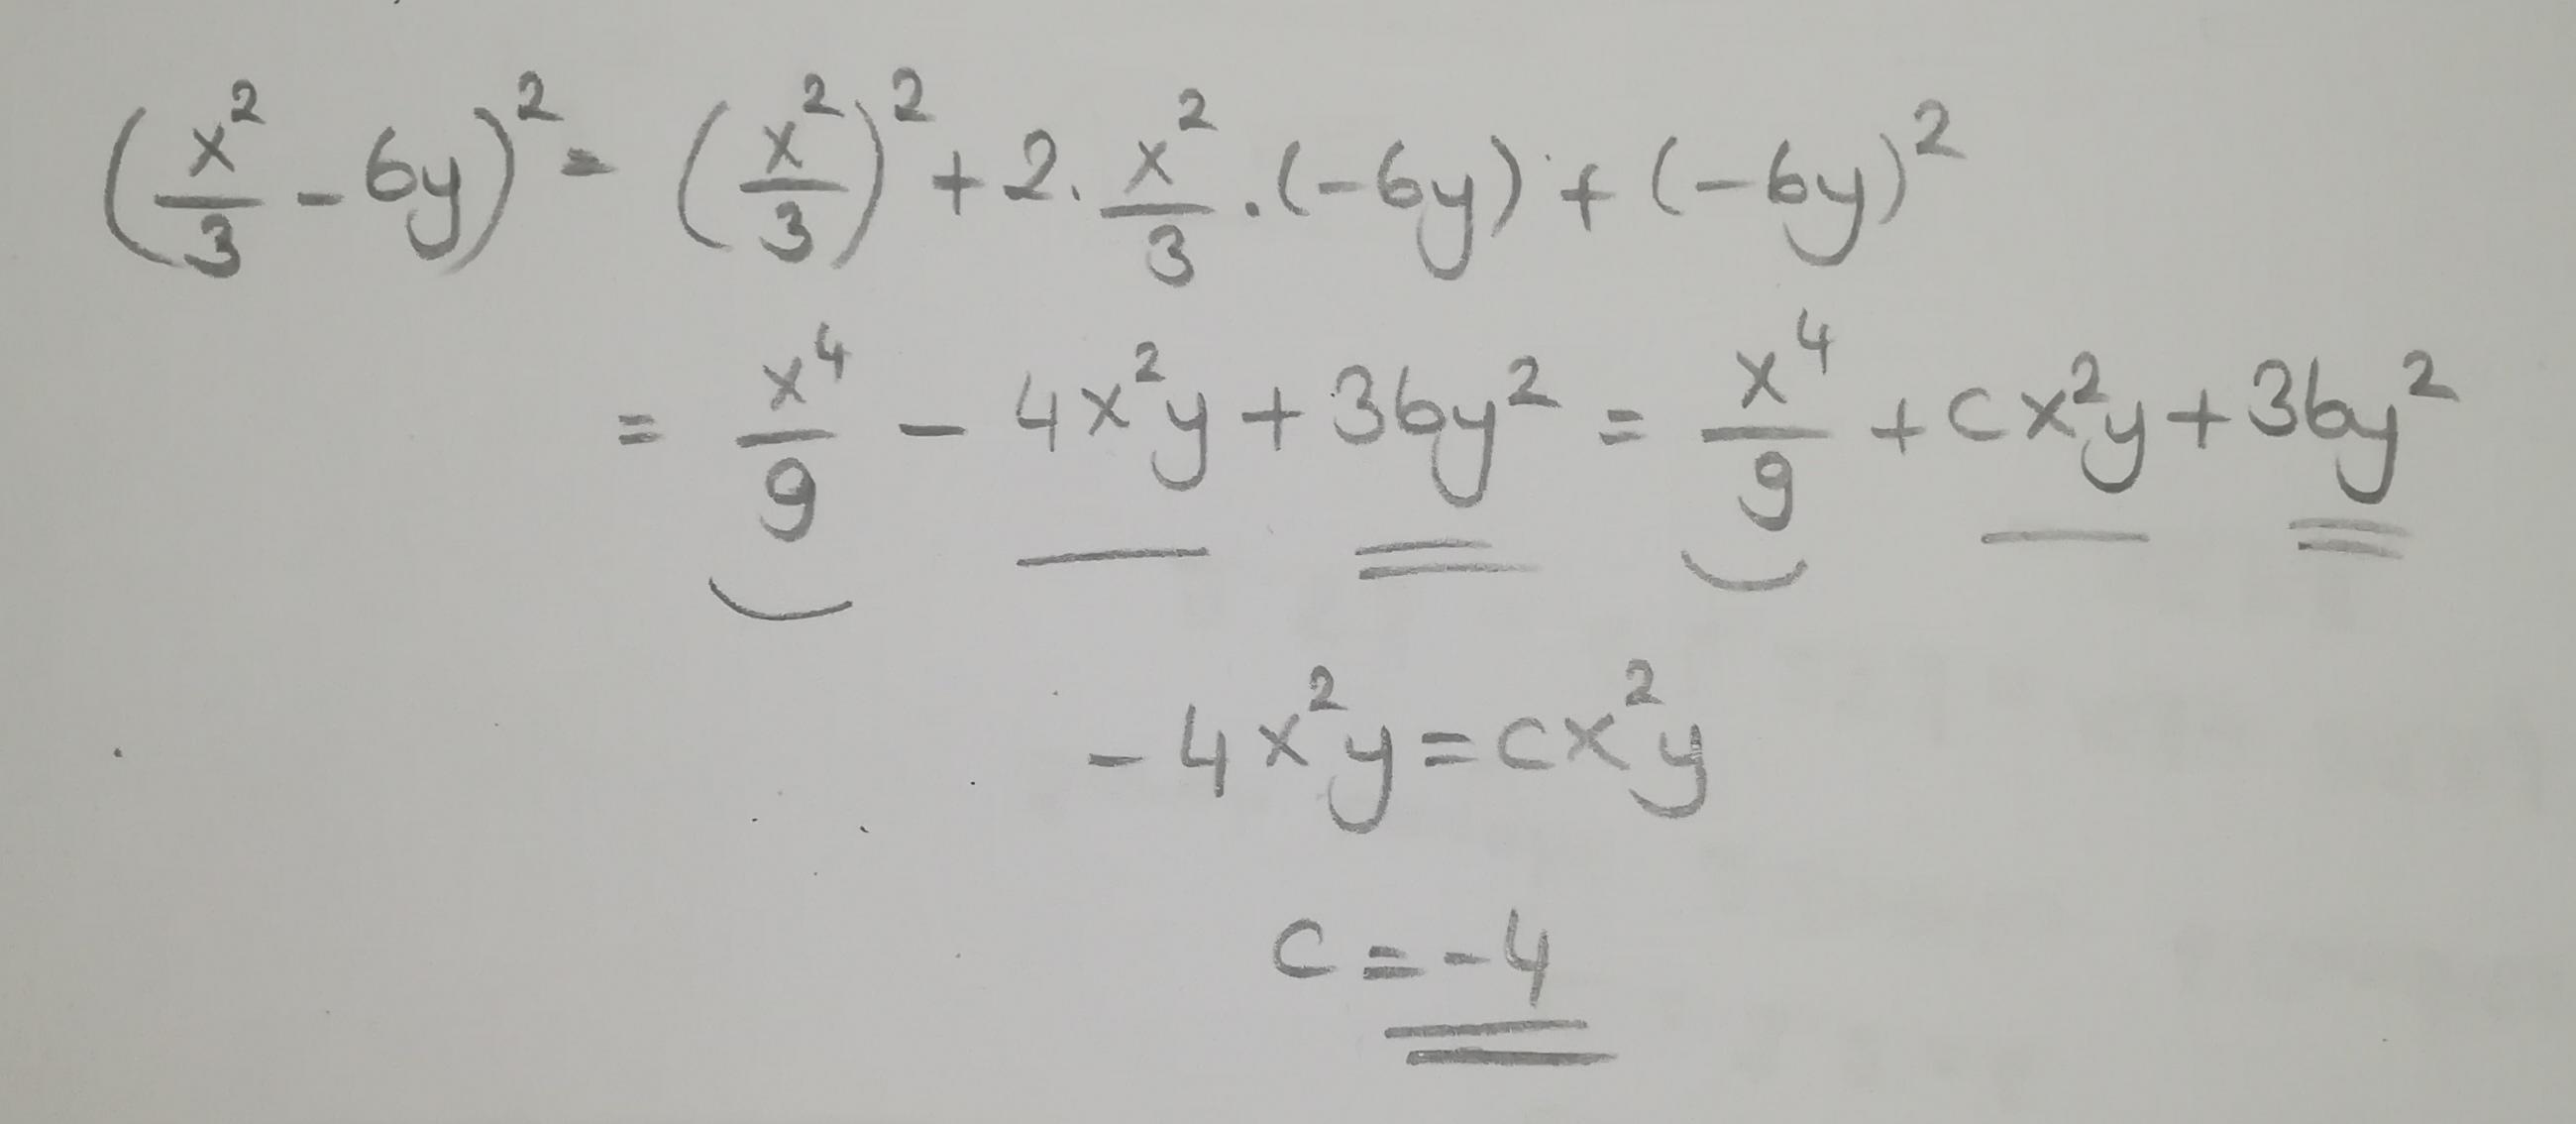 (x²/3 - 6y)² = (x²/3)² + 2 . x²/3 . (-6y) + (-6y)²
= x⁴/9 - 4x²y + 36y² = x⁴/9 + cx²y + 36y²
-4x²y = cx²y
c = -4